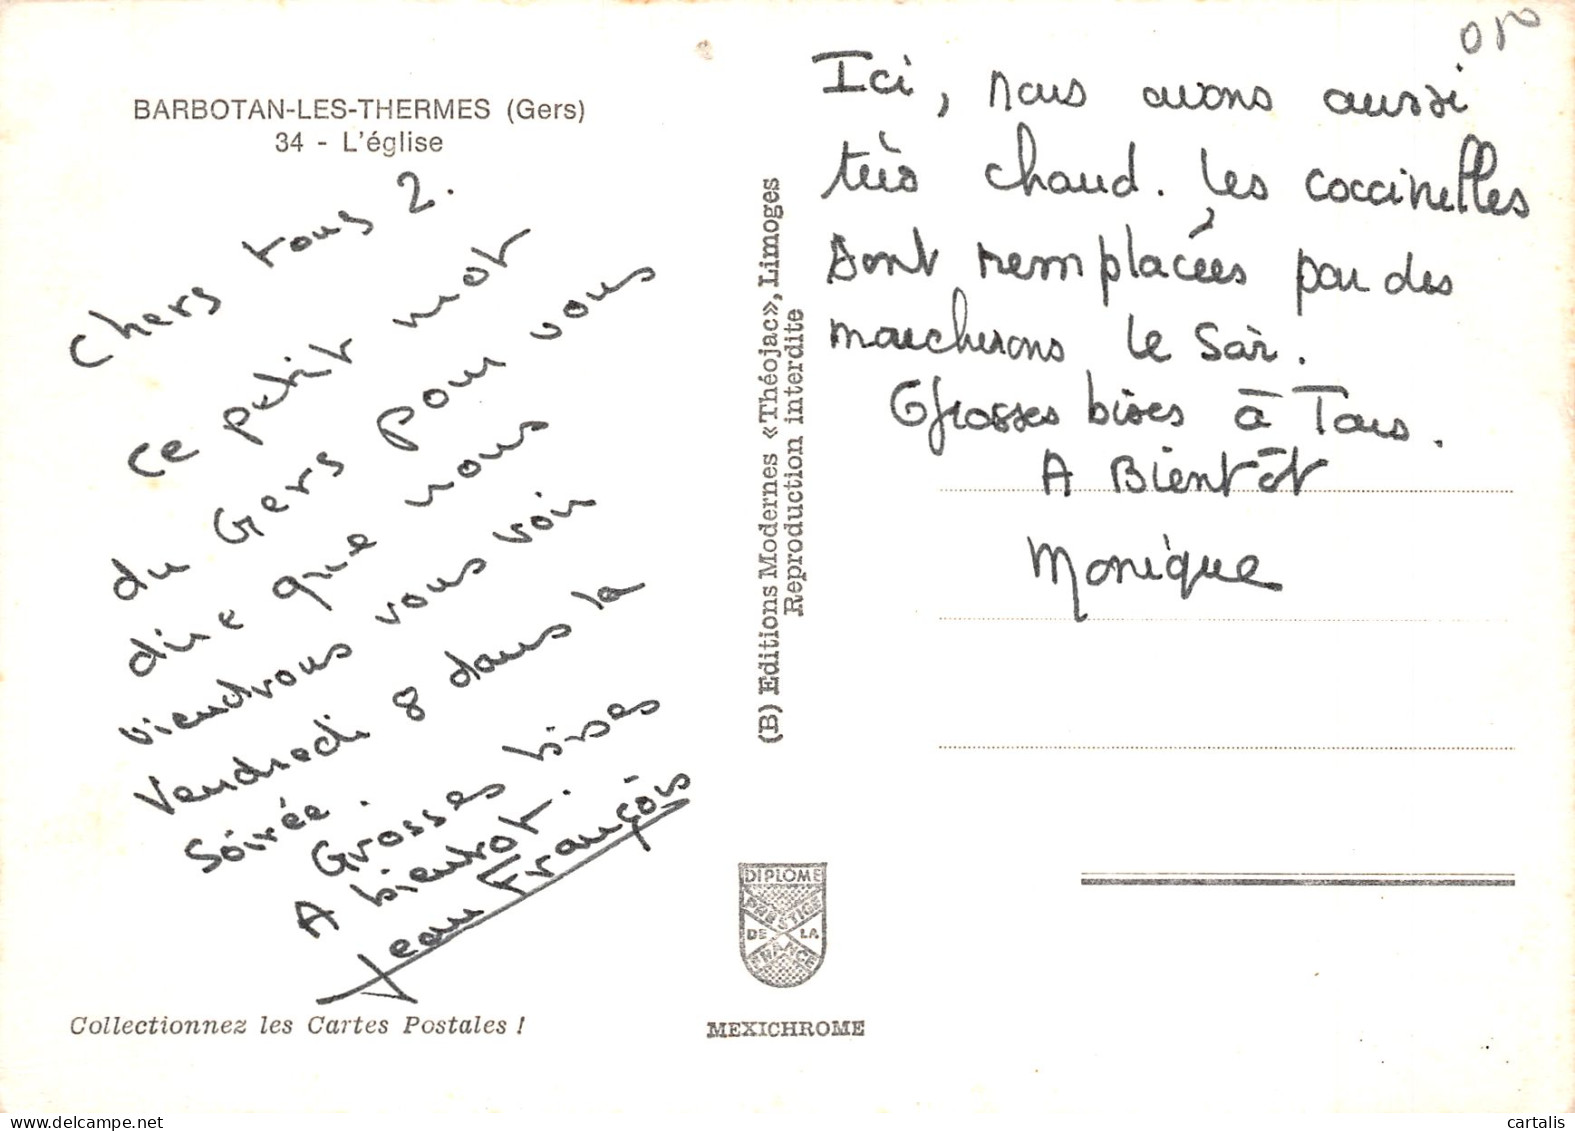 BARBOTAN-LES-THERMES (Gers)
34 - L'église
Chers tous 2.
Ce petit mot
du Gers pour vous
dire que nous
viendrons vous voir
Vendredi 8 dans la
Soirée.
Grosses bises
A bientot.
Jean François
Collectionnez les Cartes Postales !
(B) Editions Modernes «Théojac», Limoges
Reproduction interdite
DIPLOME
PRESTIGE
DE LA
FRANCE
MEXICHROME
Ici, nous avons aussi
très chaud. Les coccinelles
sont remplacées par des
moucherons le Soir.
Grosses bises à Tous.
A Bientôt
Monique
delcampe.net
cartalis